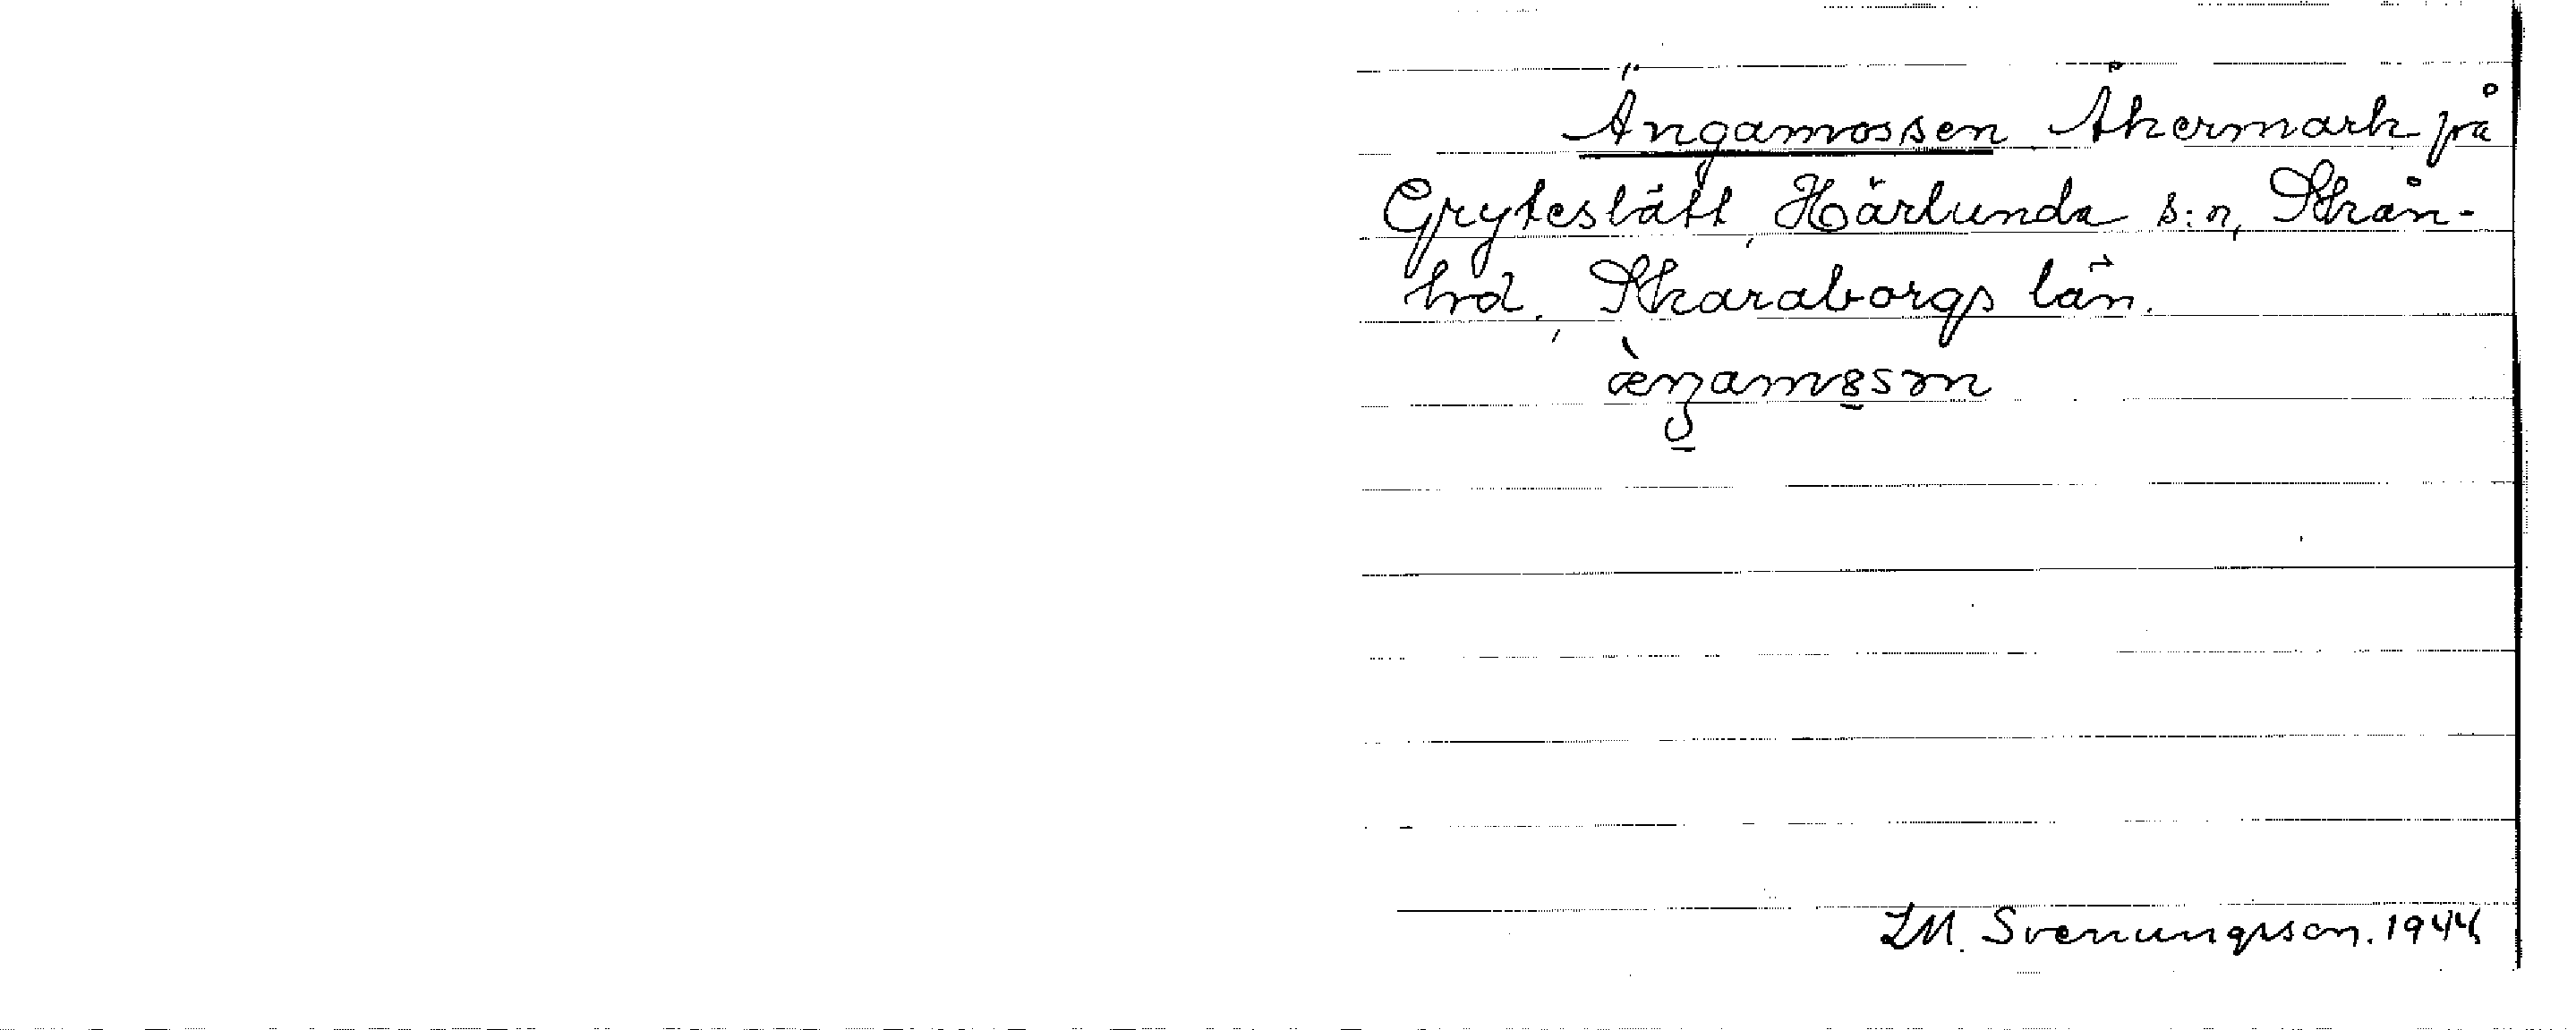 Ängamossen Åkermark på
Gryteslätt, Härlunda s:n, Skån-
hd., Skaraborgs län.
L M. Svenungsson. 1944